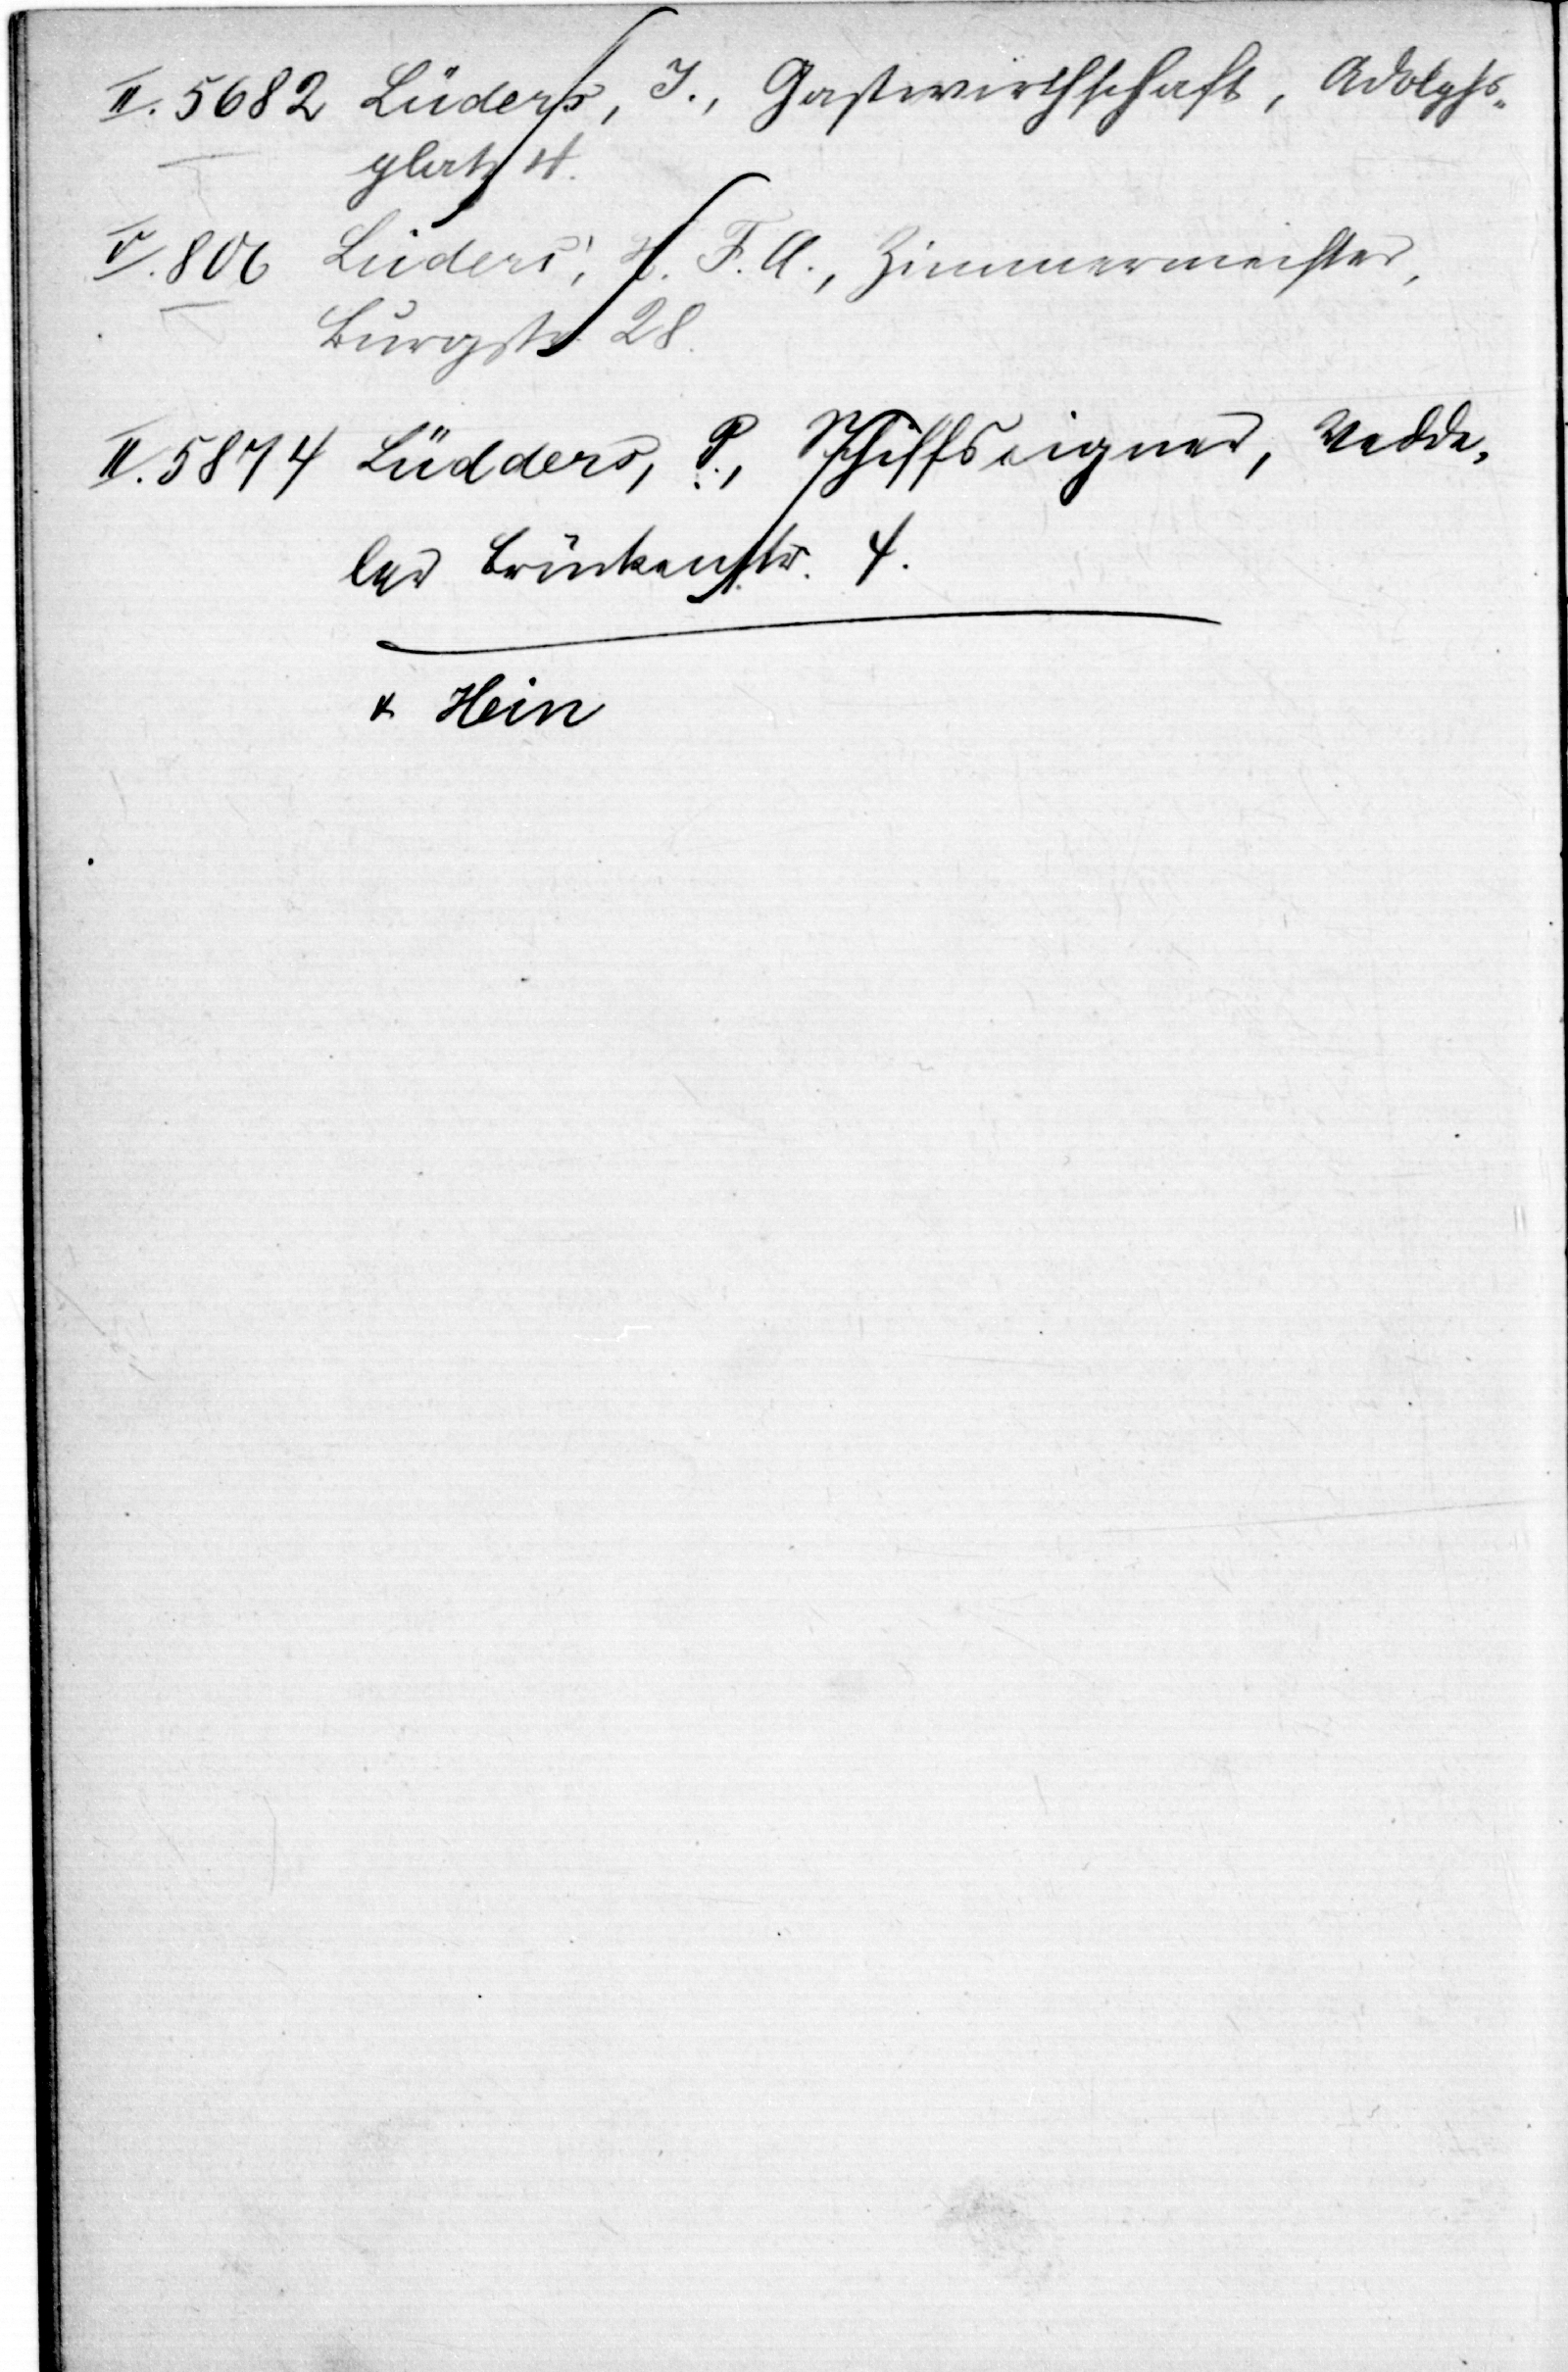 II. 5682 Lüders, J., Gastwirthschaft, Adolphs-
platz 4.
V. 806 Lüders, H. F. A., Zimmermeister,
Burgstr. 28.
II. 5874 Lüdders, P., Schiffseigner, Vedde-
ler Brückenstr. 4.
x Hein